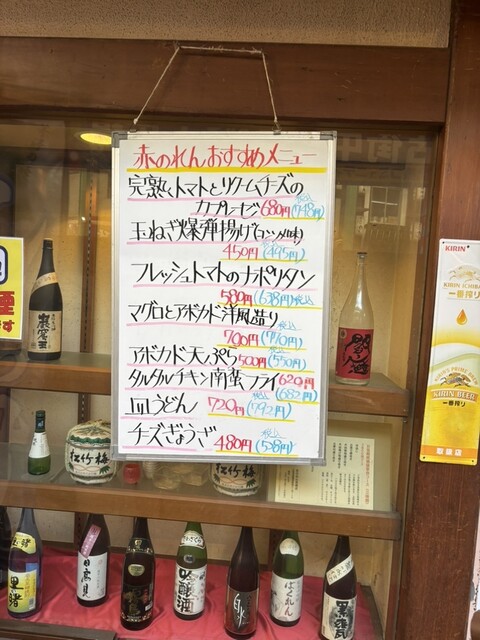 赤のれんおすすめメニュー
完熟トマトとクリームチーズの
カプレーゼ 680円(748円)税込
玉ねぎ爆弾揚げ(コンソメ味)
450円(495円)税込
フレッシュトマトのナポリタン
580円(638円)税込
マグロとアボカド洋風造り
700円(770円)税込
アボカド天ぷら500円(550円)税込
タルタルチキン南蛮フライ620円
(682円)
皿うどん 720円(792円)税込
チーズぎょうざ 480円(528円)税込
煙
です
松竹梅
松竹梅
KIRIN
KIRIN ICHIBAN
一番搾り
KIRIN BEER
一番搾り
取扱店
里諸
日高見
吟醸酒
ばくれん